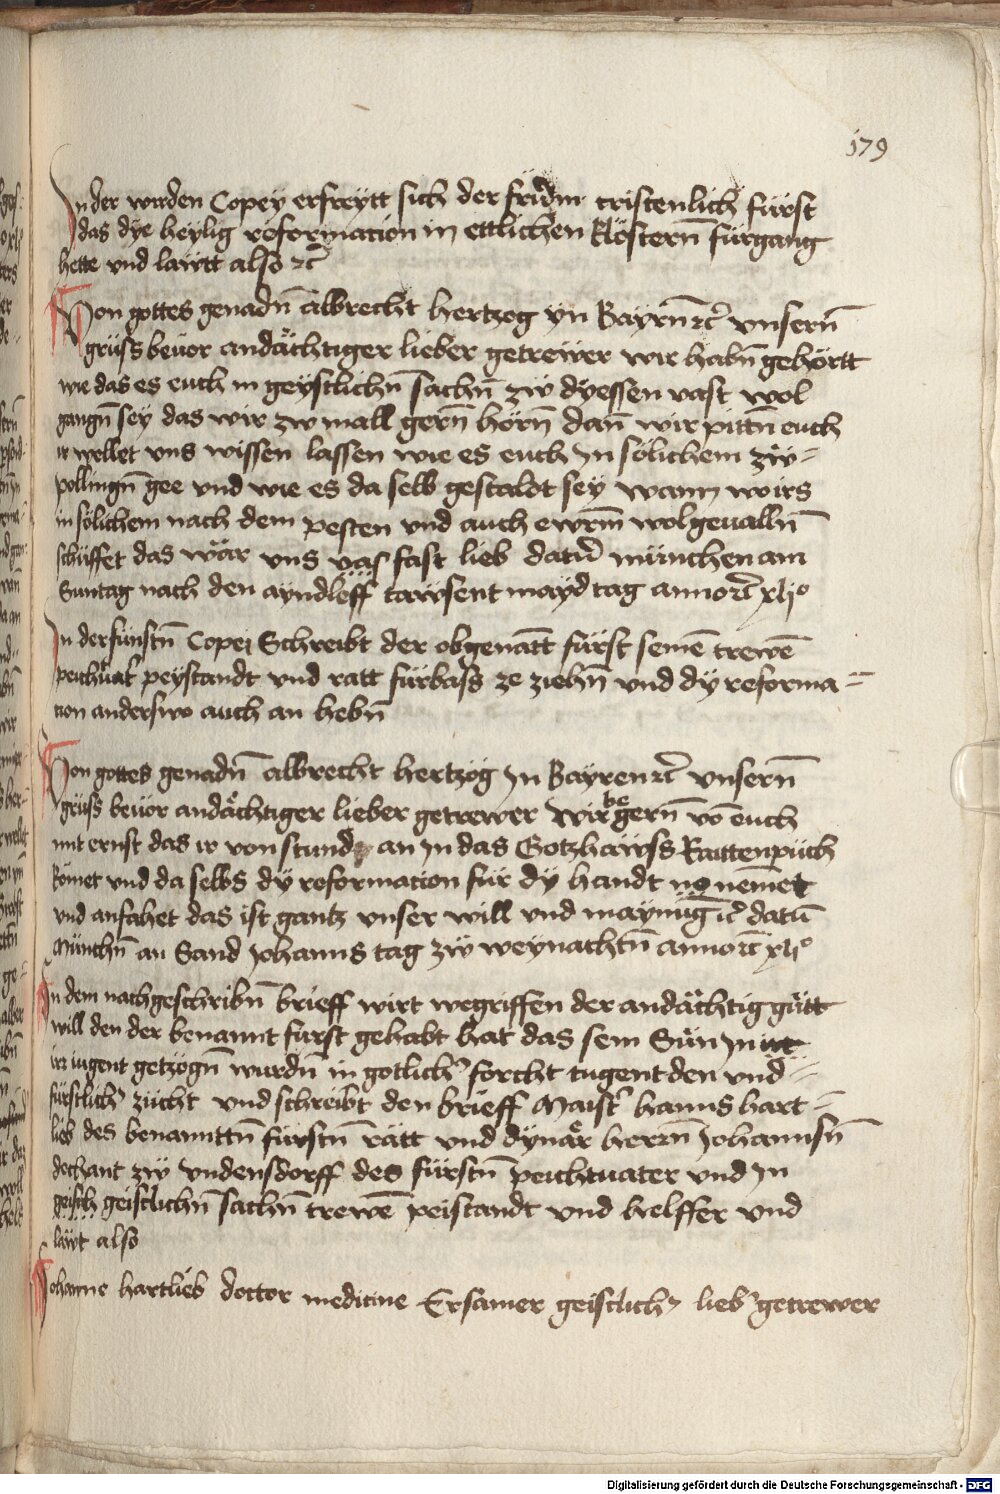 179
In der virden Copey erfreytt sich der fridm cristenlich fürst
das dye heylig reformacion in ettlichen Klöstern̄ fürgang
hette vnd lawtt also ⁊c̄
Von gottes genadn̄ albrecht hertzog yn Bayrn̄ ⁊c̄ vnsern̄
grüss beuor andächtiger lieber getrewer wir habn̄ gehörtt
wie das es euch in geystlichn̄ sachn̄ zẅ dyessen vast wol
gangn̄ sey das wir zw mall gern̄ hörn̄ dan̄ wir pittn̄ euch
ir wellet vns wissen lassen wie es euch In sölichem zẅ-
pollingn̄ gee vnd wie es da selb gestaldt sey wann wo irs
in sölichem nach dem pesten vnd auch ewrm̄ wolgeualln̄
schüffet das wär vns vas fast lieb datū münchen am
Suntag nach den ayndleff tawsent mayd tag anno ⁊c̄ xlijº
In der fünftn̄ Copei Schreibt der obgenātt fürst seinē trewē
peichtuat̄ peystandt vnd ratt fürbass ze ziehn̄ vnd dy reforma-
cion anderswo auch an hebn̄
Von gottes genadn̄ albrecht hertzog In Bayren ⁊c̄ vnsern̄
grüss beuor andächtiger lieber getrewer wir begern̄ vō euch
mit ernst das ir von stund an In das Gotzhawss Raittenpüch
kömet vnd da selbs dy reformacion für dy handt nemet
vnd anfahet das ist gantz vnser will vnd maynūg ⁊c̄ datū
Münchn̄ an Sand Johanns tag zẅ weynachtn̄ anno ⁊c̄ xlijº
In dem nachgeschribn̄ brieff wirt wegriffen der andächtig gütt
will den der benannt fürst gehabt hat das sein Sün In
irr iugent getzogn̄ wurdn̄ in gotlich̄ forcht tugentden vnd
fürstlich̄ zücht vnd schreibt den brieff Maist̄ hanns hart-
lieb des benanttn̄ fürstn̄ rätt vnd dynär herrn̄ Johannsn̄
dechant zẅ Vndensdorff des fürstn̄ peichtuater vnd In
geisch geistlichn̄ sachn̄ trewē peistandt vnd helffer vnd
läwt also
Johanne hartlieb doctor medicine Ersamer geistlich̄ lieb̄ getrewer
Digitalisierung gefördert durch die Deutsche Forschungsgemeinschaft - DFG